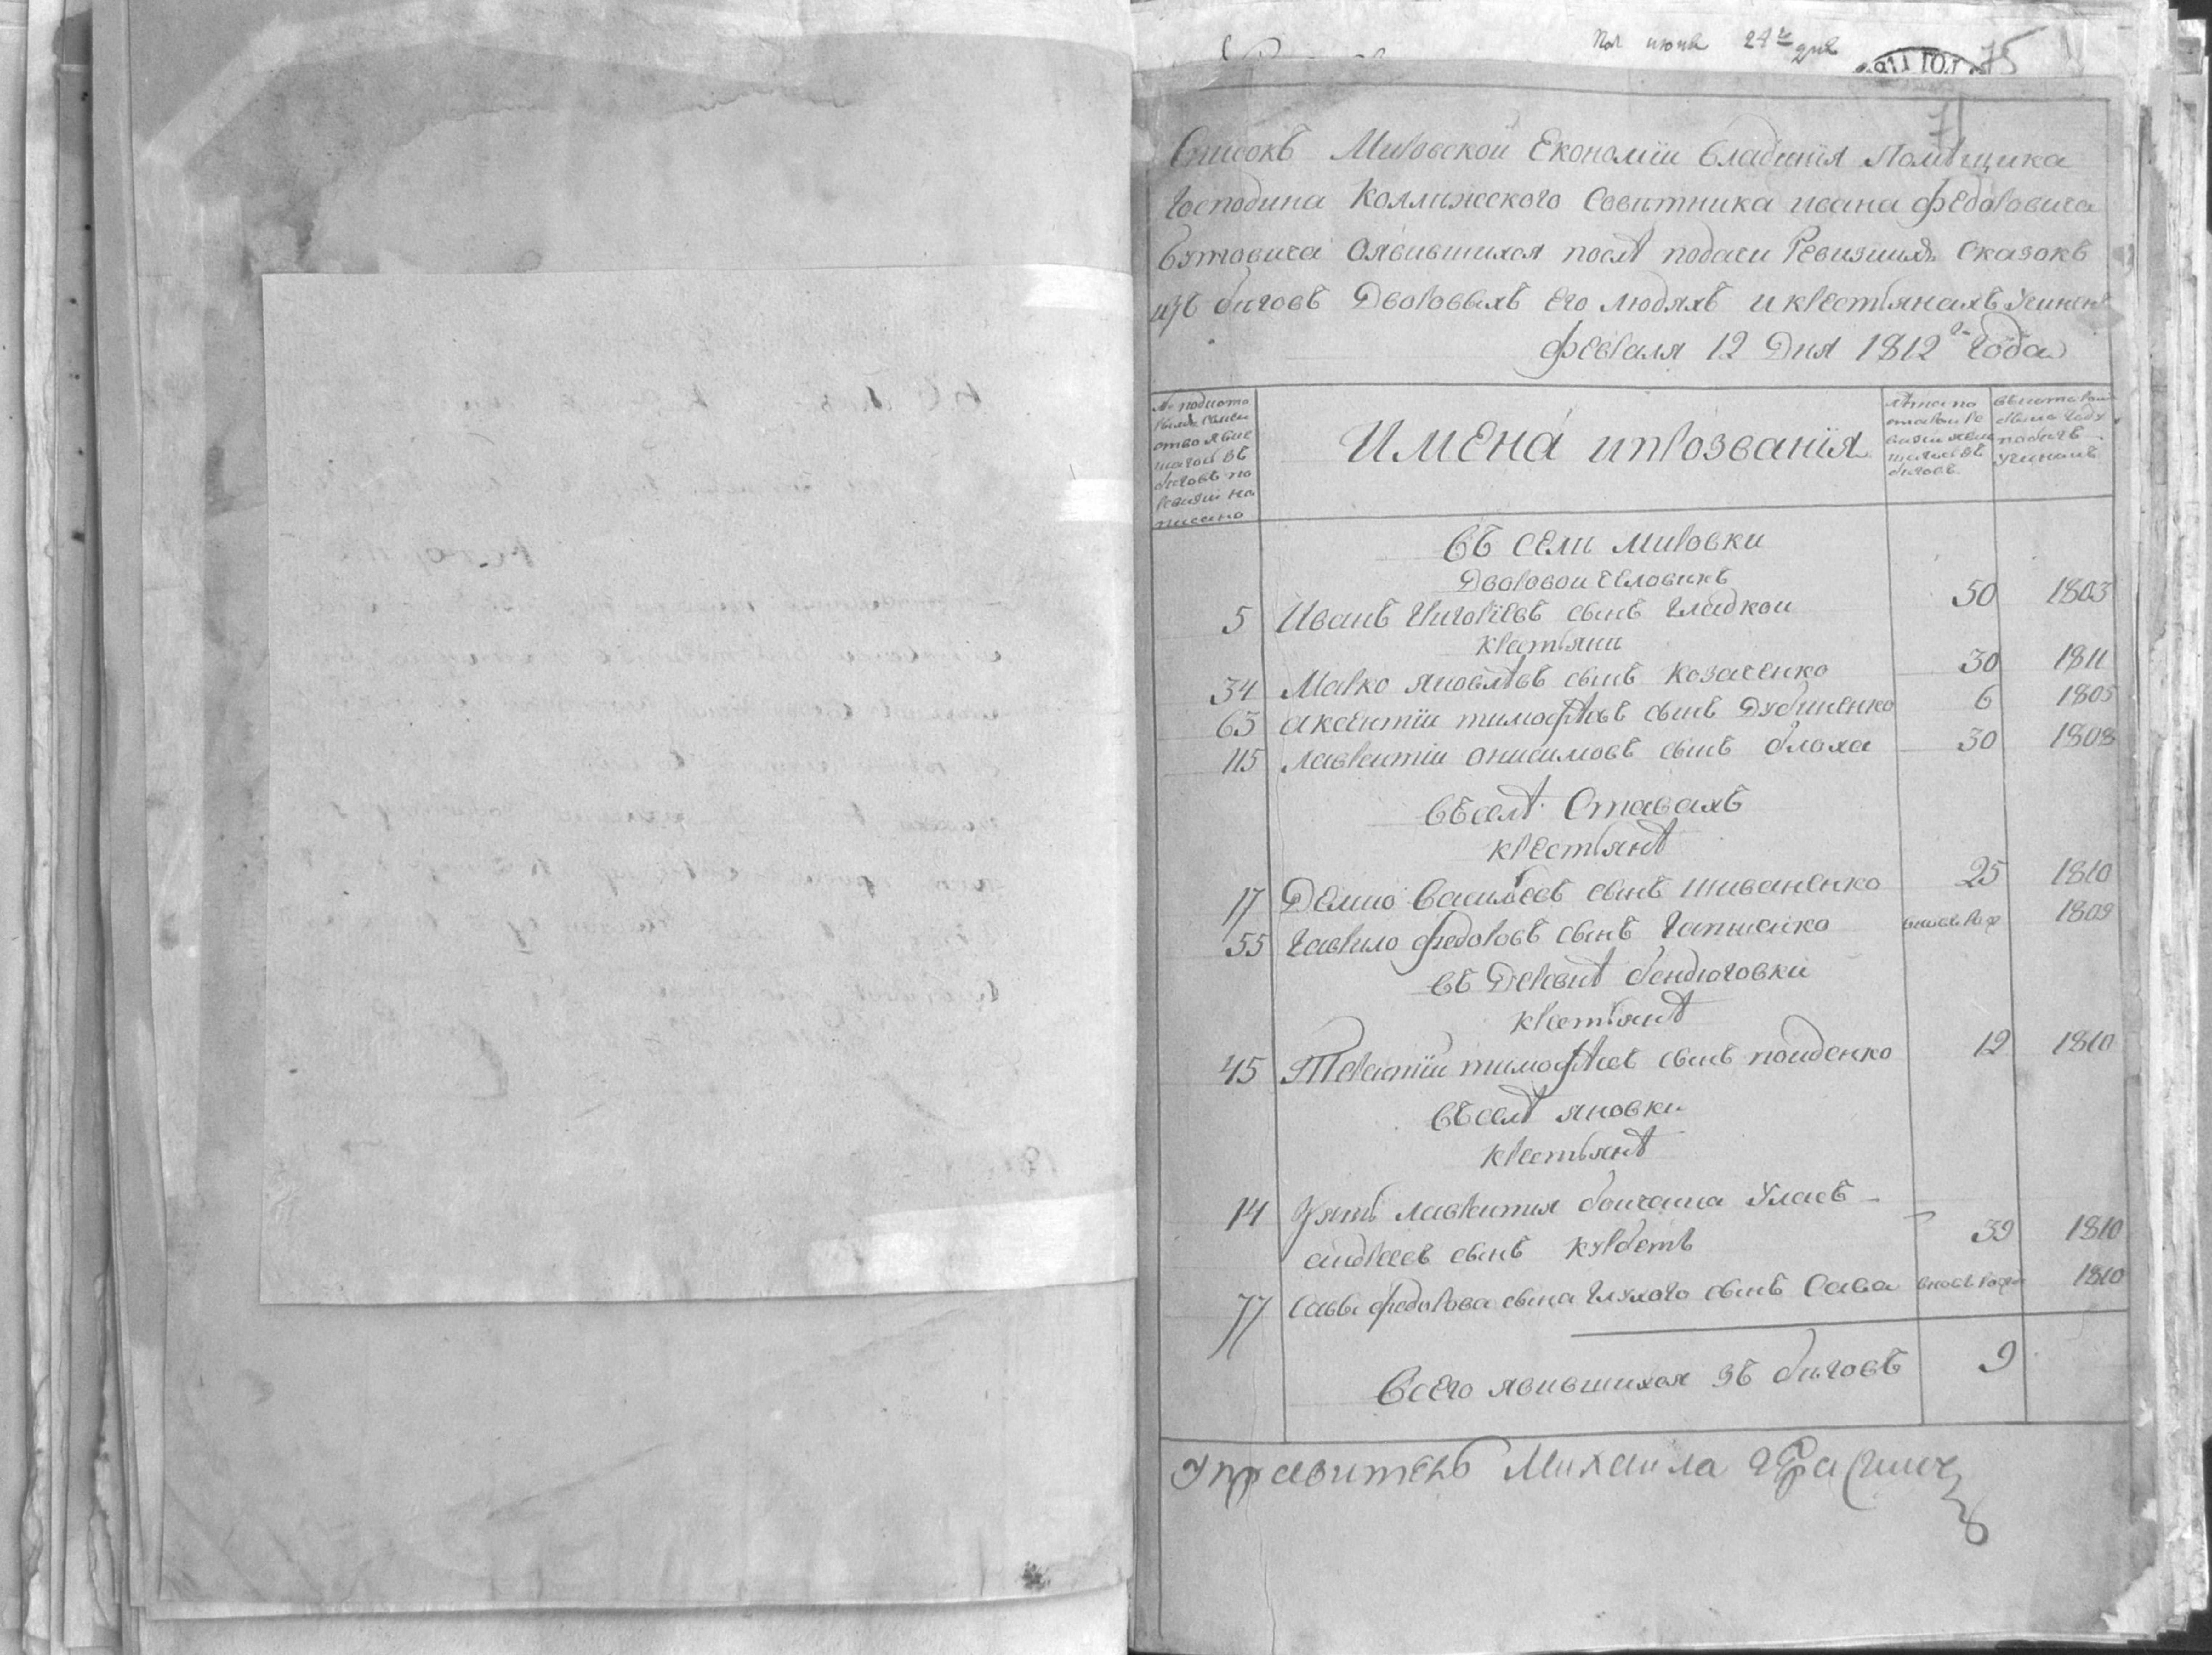 Пол июня 24го дня
75
71
Списокъ Мировской Економіи владинія Помѣщика
Господина Коллижского Совитника ивана федоровича
Бутовича Оявившихся послѣ подачи Ревизкихъ Сказокъ
изъ биговъ Дворовыхъ его людяхъ и крестьянахъ Учиненъ
февраля 12 Дня 1812го года
Имена ипрозванія
въ сели мировки
Дворовои человикъ
5 Иванъ Григорїевъ сынъ гладкои 50 1803
крестьяни
34 Марко яковлѣвъ сынъ козаченко 30 1811
63 аксентїи тимофѣевъ сынъ Дубиненко 6 1805
115 лаврентїи онисимовъ сынъ блоха 30 1808
въселѣ Ставахъ
крестьянѣ
17 Демко Васильевъ сынъ шиваненко 25 1810
55 гаврило федоровъ сынъ 1809
въ Деревнѣ бендюговки
крестьянѣ
45 Терентїи тимофѣевъ сынъ поиденко 12 1810
въселѣ яновки
крестьянѣ
14 Зять лаврентия боичата Уласъ
андреевъ сынъ курбетъ 39 1810
77 Савы федорова сына глухого сынъ Сава 1810
Всего явившихся зъ биговъ 9
Управитель Михаила